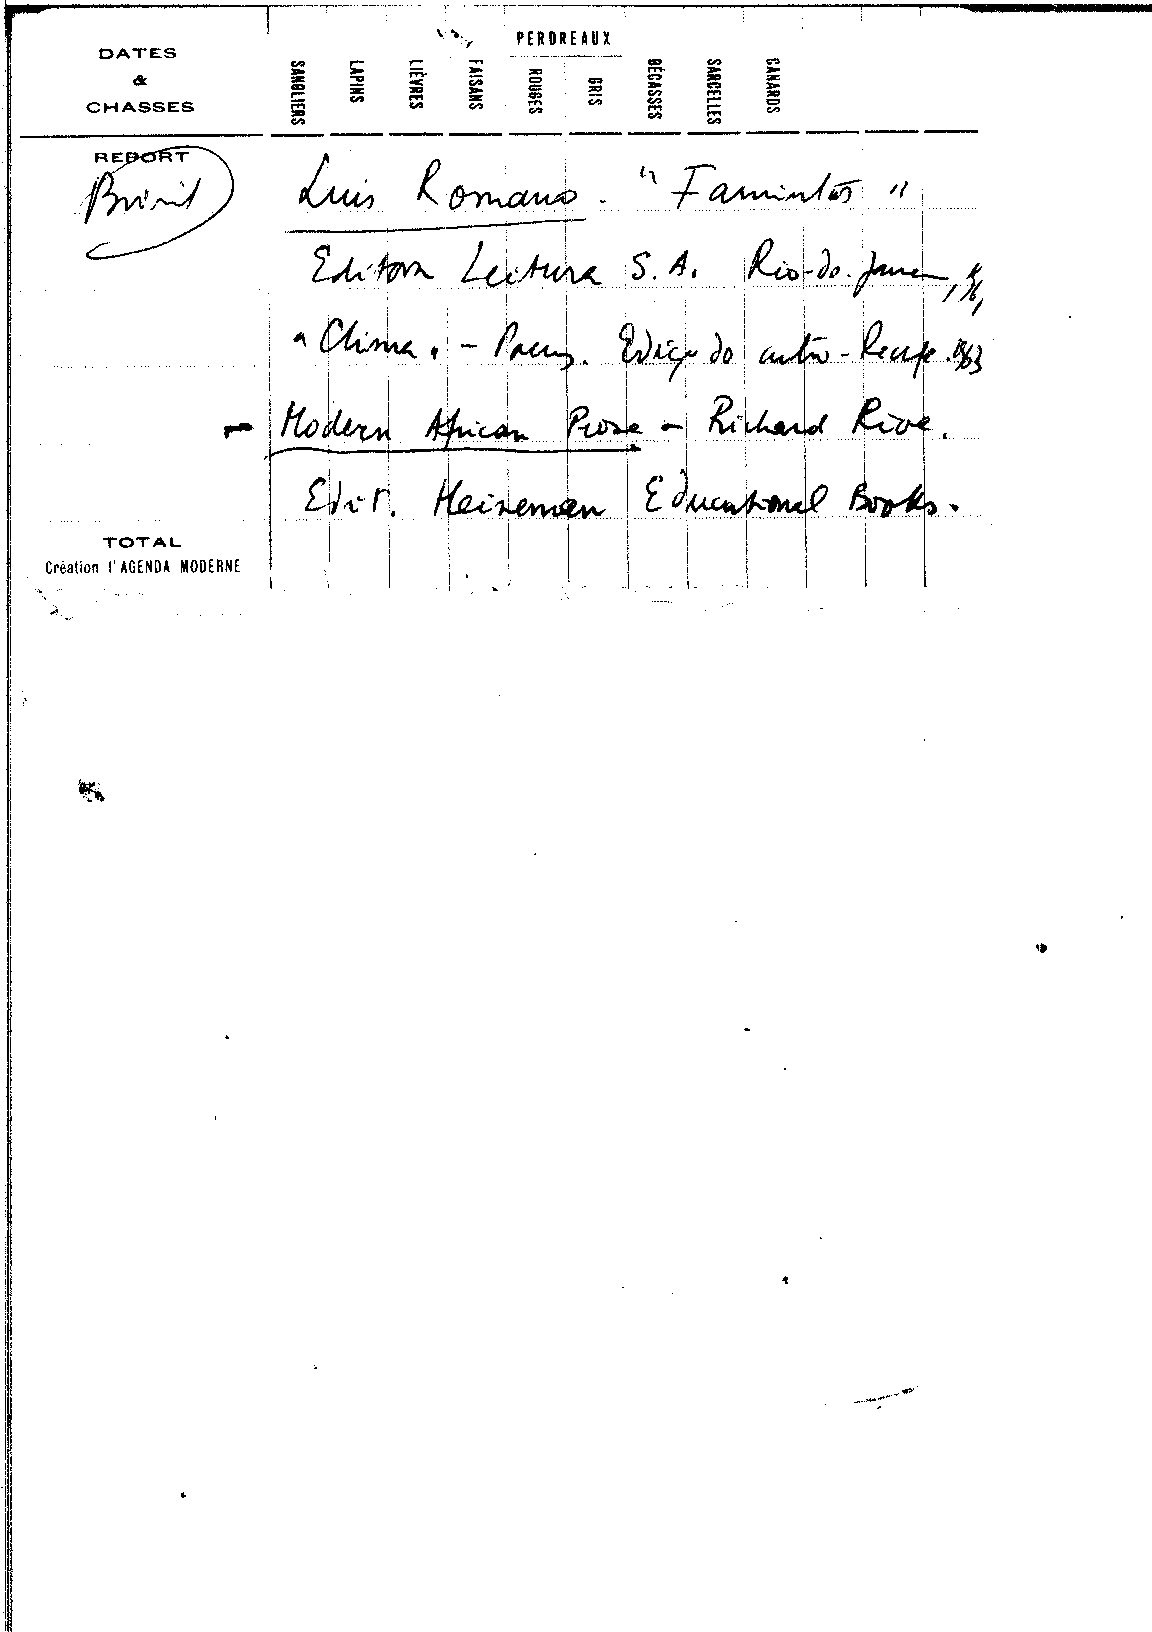 DATES
&
CHASSES
SANGLIERS
LAPINS
LIÈVRES
FAISANS
PERDREAUX
ROUGES
GRIS
BÉCASSES
SARCELLES
CANARDS
REPORT
Luis Romano. "Famintos"
Editora Leitura S.A. Rio-do-
"Clima" - do autor - 1963
- Modern African Prose - Richard Rive.
Edit. Heineman Educational Books.
TOTAL
Création l'AGENDA MODERNE